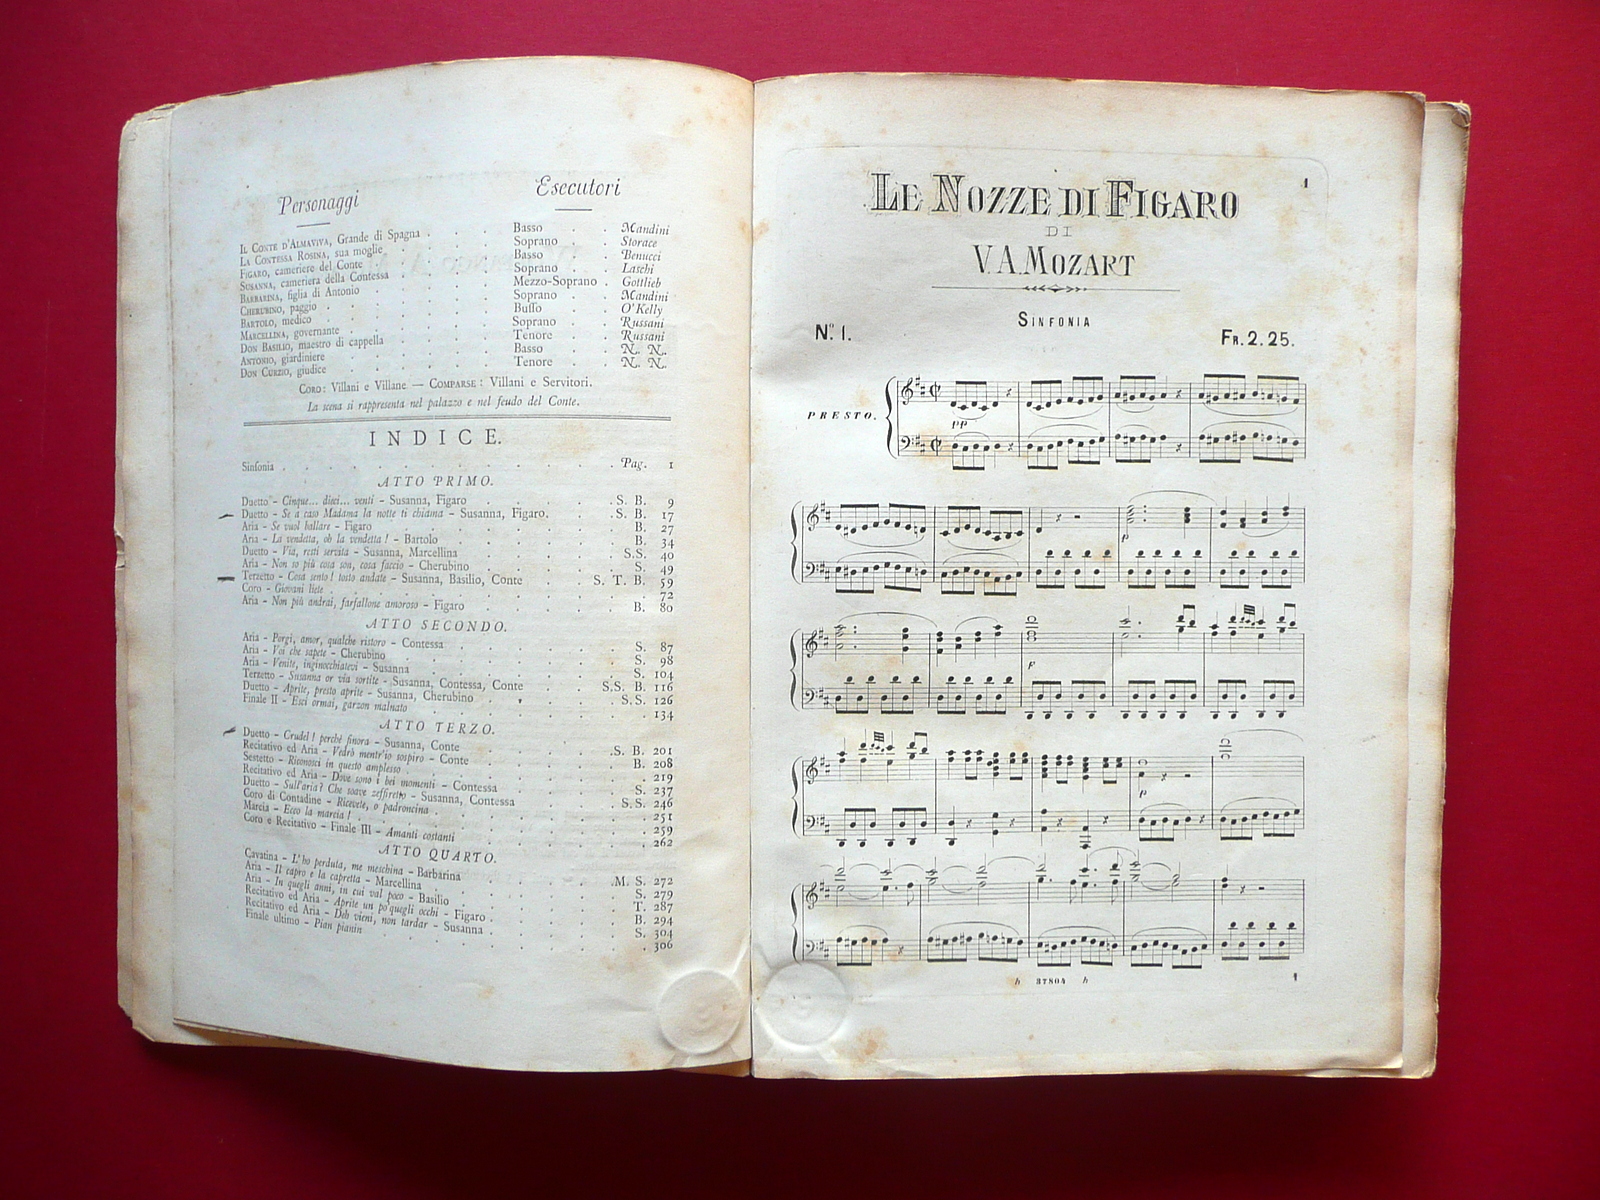 Personaggi Esecutori
IL CONTE D'ALMAVIVA, Grande di Spagna . . . Basso . . Mandini
LA CONTESSA ROSINA, sua moglie . . . Soprano . . Storace
FIGARO, cameriere del Conte . . . Basso . . Benucci
SUSANNA, cameriera della Contessa . . . Soprano . . Laschi
BARBARINA, figlia di Antonio . . . Mezzo-Soprano . Gottlieb
CHERUBINO, paggio . . . Soprano . . Mandini
BARTOLO, medico . . . Buffo . . O'Kelly
MARCELLINA, governante . . . Soprano . . Russani
DON BASILIO, maestro di cappella . . . Tenore . . Russani
ANTONIO, giardiniere . . . Basso . . N. N.
DON CURZIO, giudice . . . Tenore . . N. N.
CORO: Villani e Villane — COMPARSE: Villani e Servitori.
La scena si rappresenta nel palazzo e nel feudo del Conte.
INDICE.
Sinfonia . . . Pag. 1
ATTO PRIMO.
Duetto - Cinque... dieci... venti - Susanna, Figaro . . . S. B. 9
Duetto - Se a caso Madama la notte ti chiama - Susanna, Figaro. . . S. B. 17
Aria - Se vuol ballare - Figaro . . . B. 27
Aria - La vendetta, oh la vendetta! - Bartolo . . . B. 34
Duetto - Via, resti servita - Susanna, Marcellina . . . S.S. 40
Aria - Non so più cosa son, cosa faccio - Cherubino . . . S. 49
Terzetto - Cosa sento! tosto andate - Susanna, Basilio, Conte . . . S. T. B. 59
Coro - Giovani liete . . . 72
Aria - Non più andrai, farfallone amoroso - Figaro . . . B. 80
ATTO SECONDO.
Aria - Porgi, amor, qualche ristoro - Contessa . . . S. 87
Aria - Voi che sapete - Cherubino . . . S. 98
Aria - Venite, inginocchiatevi - Susanna . . . S. 104
Terzetto - Susanna or via sortite - Susanna, Contessa, Conte . . . S.S. B. 116
Duetto - Aprite, presto aprite - Susanna, Cherubino . . . S.S. 126
Finale II - Esci ormai, garzon malnato . . . 134
ATTO TERZO.
Duetto - Crudel! perchè finora - Susanna, Conte . . . S. B. 201
Recitativo ed Aria - Vedrò mentr'io sospiro - Conte . . . B. 208
Sestetto - Riconosci in questo amplesso . . . 219
Recitativo ed Aria - Dove sono i bei momenti - Contessa . . . S. 237
Duetto - Sull'aria? Che soave zeffiretto - Susanna, Contessa . . . S.S. 246
Coro di Contadine - Ricevete, o padroncina . . . 251
Marcia - Ecco la marcia! . . . 259
Coro e Recitativo - Finale III - Amanti costanti . . . 262
ATTO QUARTO.
Cavatina - L'ho perduta, me meschina - Barbarina . . . M. S. 272
Aria - Il capro e la capretta - Marcellina . . . S. 279
Aria - In quegli anni, in cui val poco - Basilio . . . T. 287
Recitativo ed Aria - Aprite un po' quegli occhi - Figaro . . . B. 294
Recitativo ed Aria - Deh vieni, non tardar - Susanna . . . S. 304
Finale ultimo - Pian pianin . . . 306
1
LE NOZZE DI FIGARO
DI
V.A.MOZART
SINFONIA
No. 1. FR. 2. 25.
PRESTO.
pp
p
f
p
h 37804 h
1